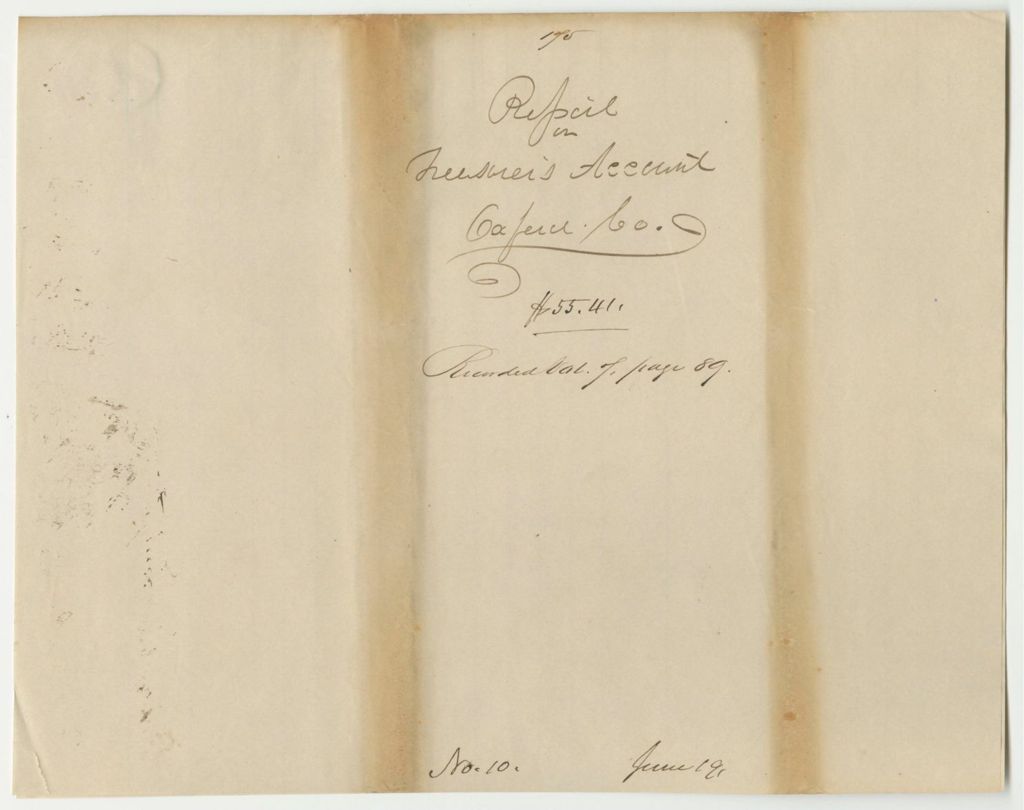 175
Report
on
Treasurer's Account
Oxford Co.
$55.41.
Recorded Vol. 7, page 89.
No. 10. June 19,